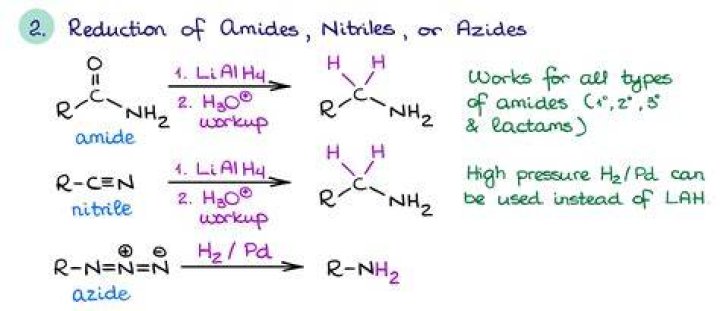 2. Reduction of Amides, Nitriles, or Azides
O
R-C-NH₂
amide
1. LiAlH₄
2. H₃O⊕
workup
H H
R-C-NH₂
Works for all types
of amides (1°, 2°, 3°
& lactams)
R-C≡N
nitrile
1. LiAlH₄
2. H₃O⊕
workup
H H
R-C-NH₂
High pressure H₂/Pd can
be used instead of LAH
R-N=N⊕=N⊖
azide
H₂/Pd
R-NH₂